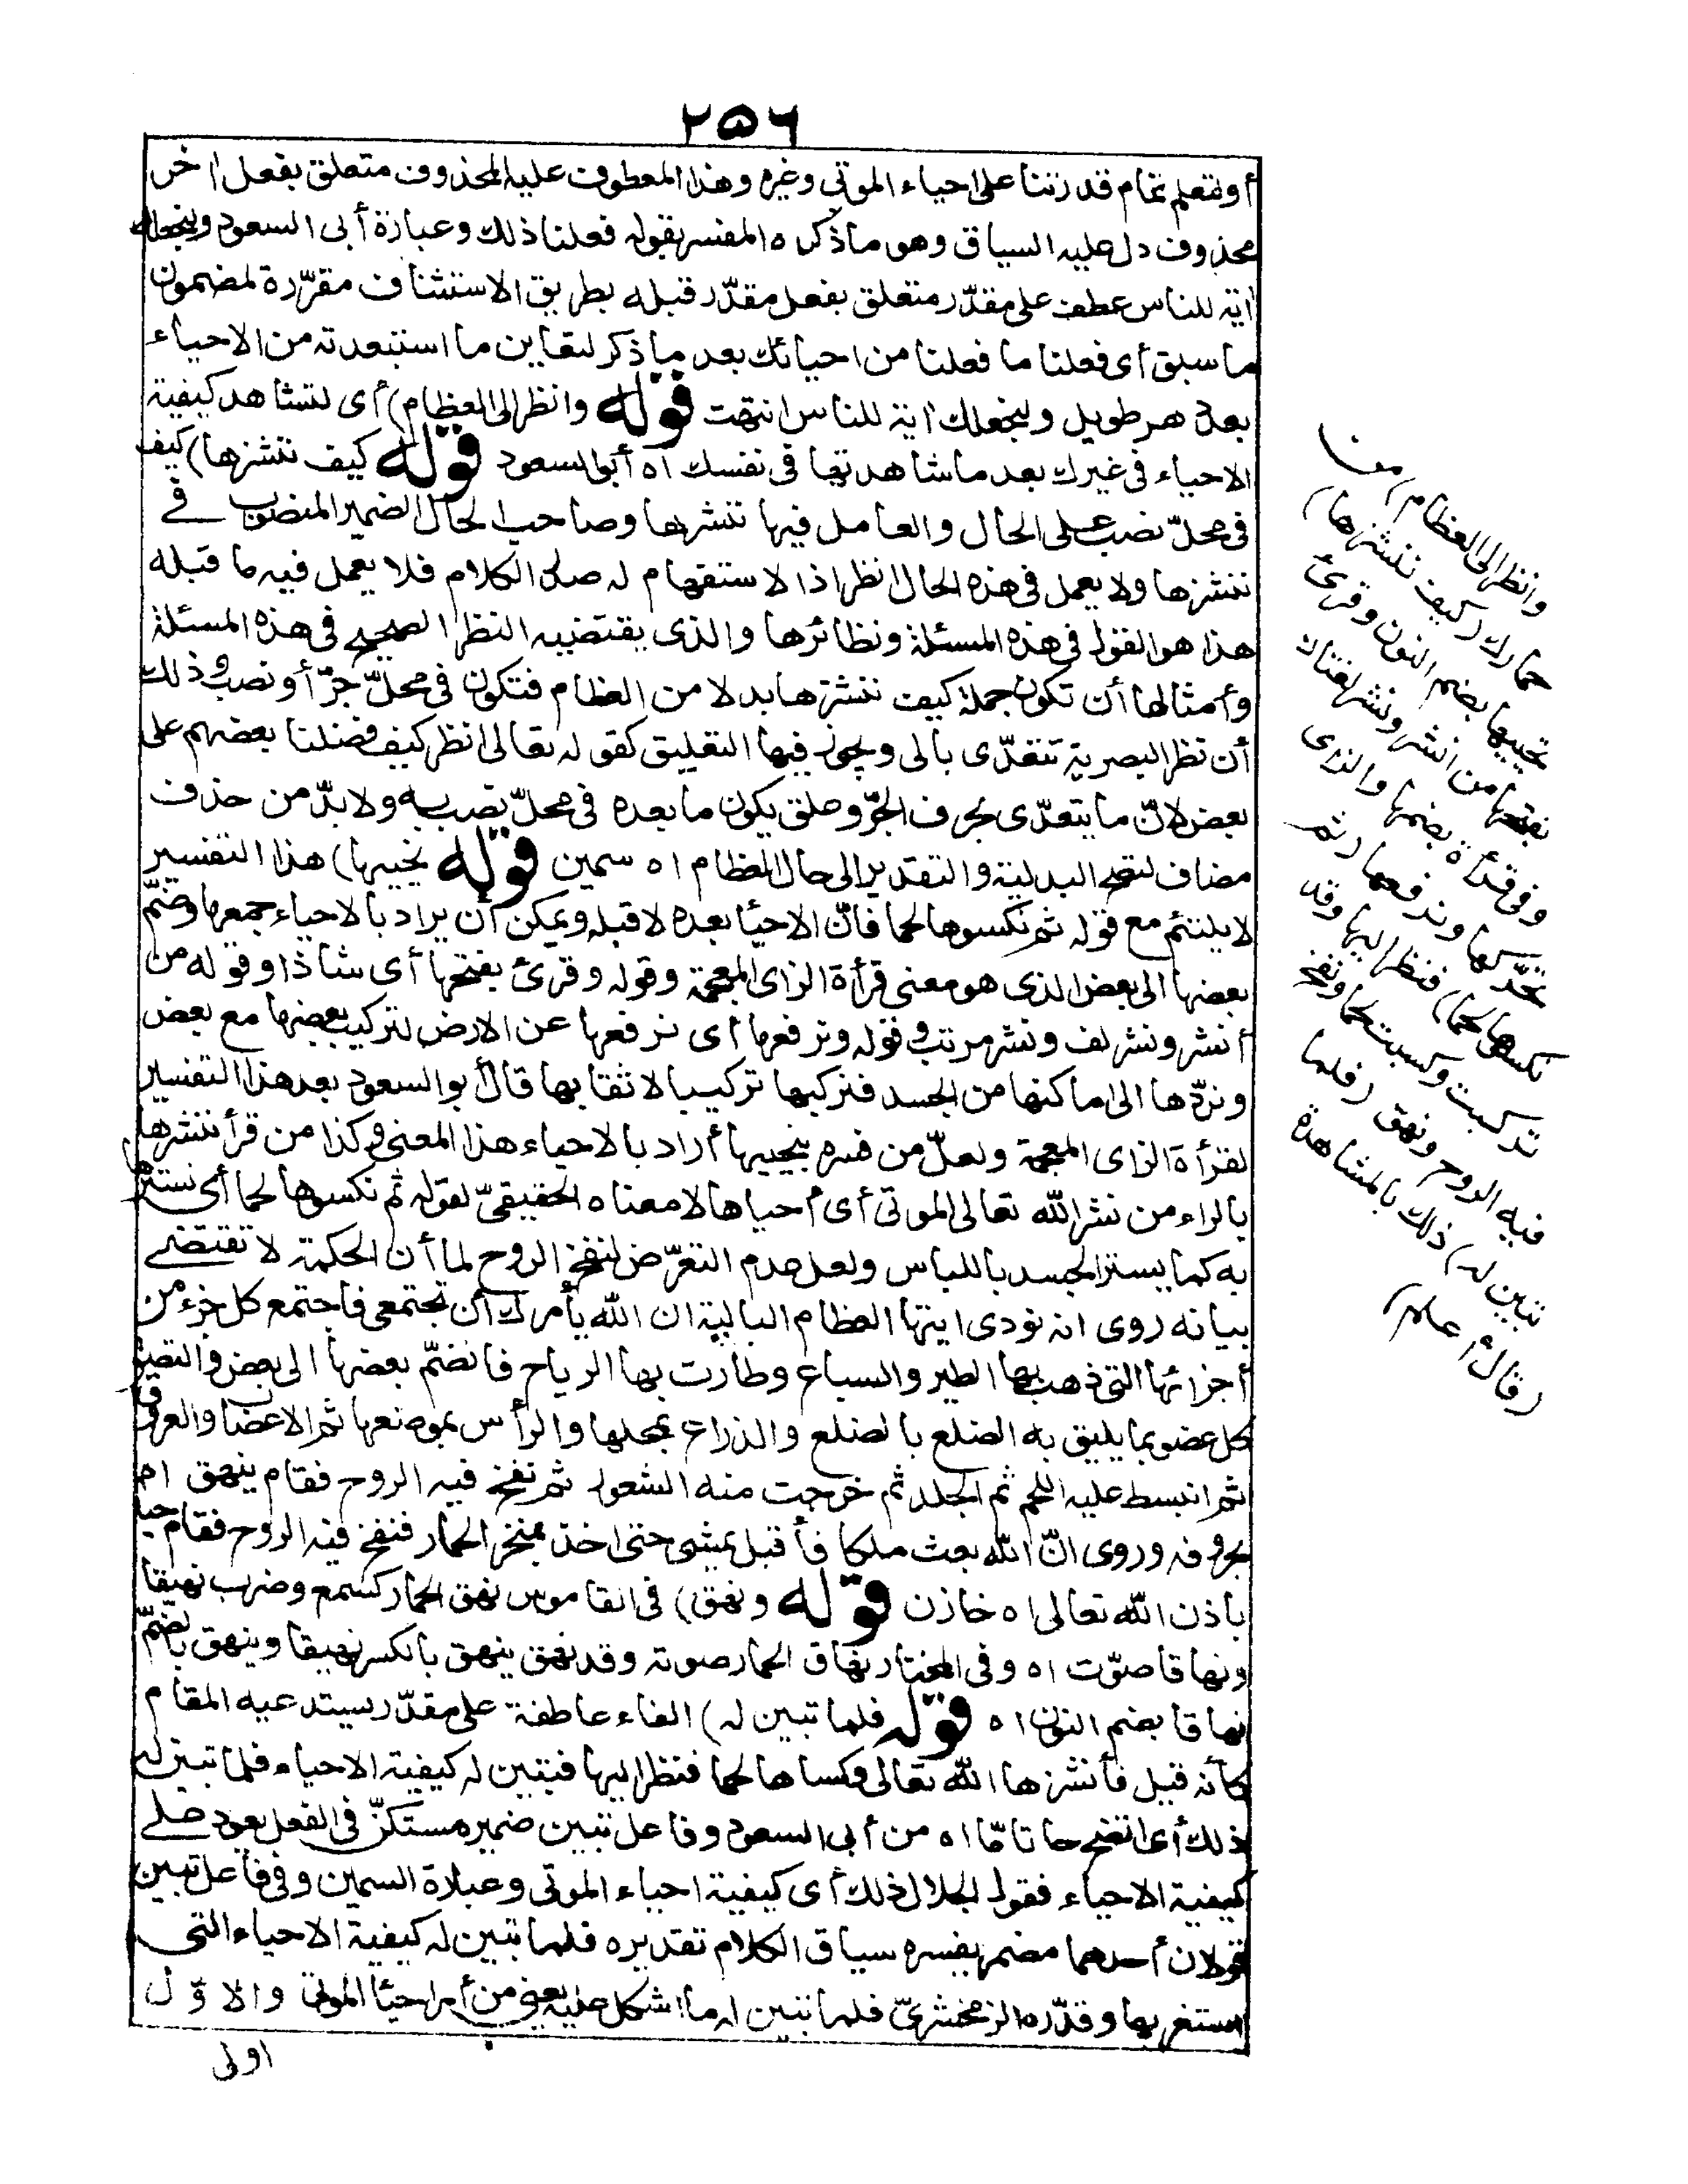 ٢٥٦
أو لتعلم تمام قدرتنا على احياء الموتى وغيره وهذا المعطوف عليه المحذوف متعلق بفعل اخر
محذوف دل عليه السياق وهو ما ذكره المفسر بقوله فعلنا ذلك وعبارة أبى السعود ولنجعلك
اية للناس عطف على مقدّر متعلق بفعل مقدّر قبله بطريق الاستئناف مقرّرة لمضمون
ما سبق أى فعلنا ما فعلنا من احيائك بعد ما ذكر لتعاين ما استبعدته من الاحياء
بعد دهر طويل ولنجعلك اية للناس انتهت قوله وانظر الى العظام) أى لتشاهد كيفية
الاحياء فى غيرك بعد ما شاهدتها فى نفسك اه أبو السعود قوله كيف ننشزها) كيف
فى محلّ نصب على الحال والعامل فيها ننشزها وصاحب الحال الضمير المنصوب فى
ننشزها ولا يعمل فى هذه الحال انظر اذ الاستفهام له صدر الكلام فلا يعمل فيه ما قبله
هذا هو القول فى هذه المسئلة ونظائرها والذى يقتضيه النظر الصحيح فى هذه المسئلة
وأمثالها أن تكون جملة كيف ننشزها بدلا من العظام فتكون فى محلّ جرّ أو نصب وذلك
أن نظر البصرية تتعدّى بالى ويجوز فيها التعليق كقوله تعالى انظر كيف فضلنا بعضهم على
بعض لانّ ما يتعدّى بحرف الجرّ وعلق يكون ما بعده فى محلّ نصب به ولا بدّ من حذف
مضاف لتصح البدلية والتقدير الى حال العظام اه سمين قوله نحييها) هذا التفسير
لا يلتئم مع قوله ثم نكسوها لحما فانّ الاحيا بعده لا قبله ويمكن أن يراد بالاحياء جمعها وضمّ
بعضها الى بعض الذى هو معنى قرأة الزاى المعجمة وقوله وقرئ بفتحها أى شاذا وقوله من
أنشر ونشر لف ونشر مرتب وقوله ونرفعها أى نرفعها عن الارض لتركيب بعضها مع بعض
ونردّها الى اماكنها من الجسد فنركبها تركيبا لائقا بها قال أبو السعود بعد هذا التفسير
لقرأة الزاى المعجمة ولعلّ من فسره بنحييها أراد بالاحياء هذا المعنى وكذا من قرأ ننشرها
بالراء من نشر الله تعالى الموتى أى أحياها لا معناه الحقيقىّ لقوله ثم نكسوها لحما أى نسترها
به كما يستر الجسد باللباس ولعل عدم التعرّض لنفخ الروح لما أن الحكمة لا تقتضى
بيانه روى انه نودى ايتها العظام البالية ان الله يأمرك أن تجتمعى فاجتمع كل جزء من
أجزائها التى ذهب بها الطير والسباع وطارت بها الرياح فانضمّ بعضها الى بعض والتصق
كل عضو بما يليق به الضلع بالضلع والذراع بمحلها والرأس بموضعها ثم الاعصاب والعروق
ثم انبسط عليه اللحم ثم الجلد ثم خرجت منه الشعور ثم نفخ فيه الروح فقام ينهق اه
بحروفه وروى انّ الله بعث ملكا فأقبل يمشى حتى اخذ بمنخر الحمار فنفخ فيه الروح فقام حيا
باذن الله تعالى اه خازن قوله ونهق) فى القاموس نهق الحمار كسمع وضرب نهيقا
ونهاقا صوّت اه وفى المختار نهاق الحمار صوته وقد نهق ينهق بالكسر نهيقا وينهق بالضمّ
نهاقا بضم النون اه قوله فلما تبين له) الفاء عاطفة على مقدّر يستدعيه المقام
كأنه قيل فأنشزها الله تعالى وكساها لحما فنظر اليها فتبين له كيفية الاحياء فلما تبين له
ذلك أى اتضح اتضاحا تامّا اه من أبى السعود وفاعل تبين ضمير مستكنّ فى الفعل يعود على
كيفية الاحياء فقول الجلال ذلك أى كيفية احياء الموتى وعبارة السمين وفى فاعل تبين
قولان أحدهما مضمر يفسره سياق الكلام تقديره فلما تبين له كيفية الاحياء التى
استغربها وقدّره الزمخشرىّ فلما تبين له ما اشكل عليه يعنى من أمر احيا الموتى والاوّل
اولى
وانظر الى العظام) من
حمارك (كيف ننشزها)
نحييها بضم النون وقرئ
بفتحها من انشر ونشر لغتان
وفى قرأة بضمها والزاى
نحرّكها ونرفعها (ثم
نكسوها لحما) فنظر اليها وقد
تركبت وكسيت لحما ونفخ
فيه الروح ونهق (فلما
تبين له) ذلك بالمشاهدة
(قال أعلم)